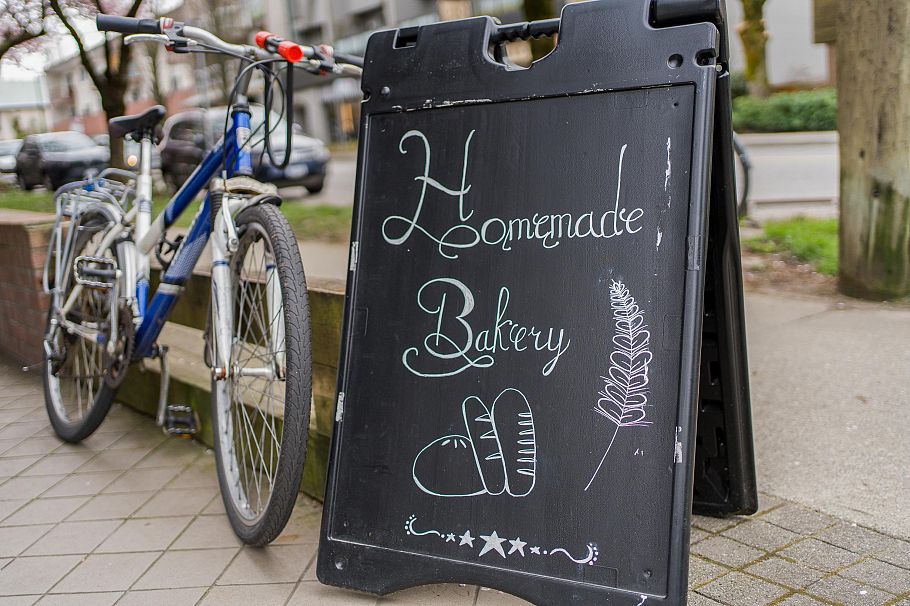 Homemade
Bakery